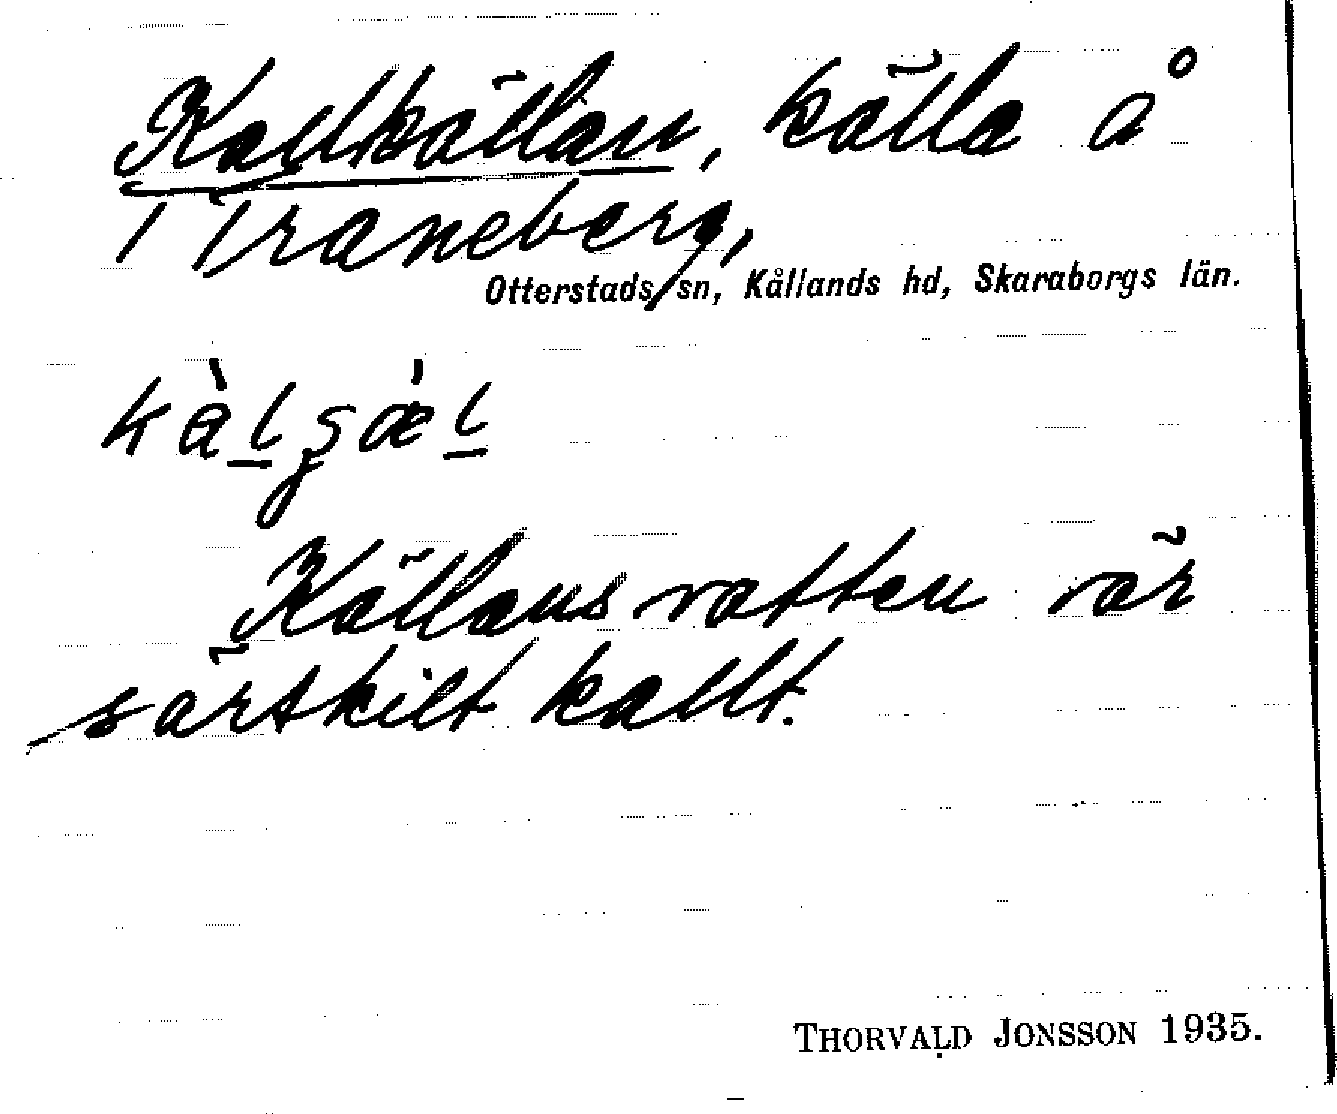 Kallkällan, källa å
Traneberg,
Otterstads sn, Kållands hd, Skaraborgs län.
kàlʂæ̀l
Källans vatten är
särskilt kallt.
THORVALD JONSSON 1935.